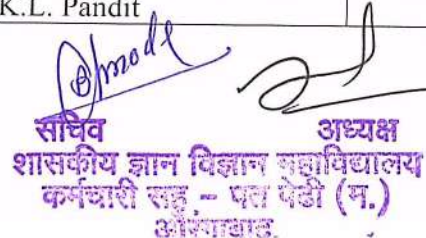 K.L. Pandit
सचिव अध्यक्ष
शासकीय ज्ञान विज्ञान महाविद्यालय
कर्मचारी सह - पत पेढी (म.)
औरंगाबाद.